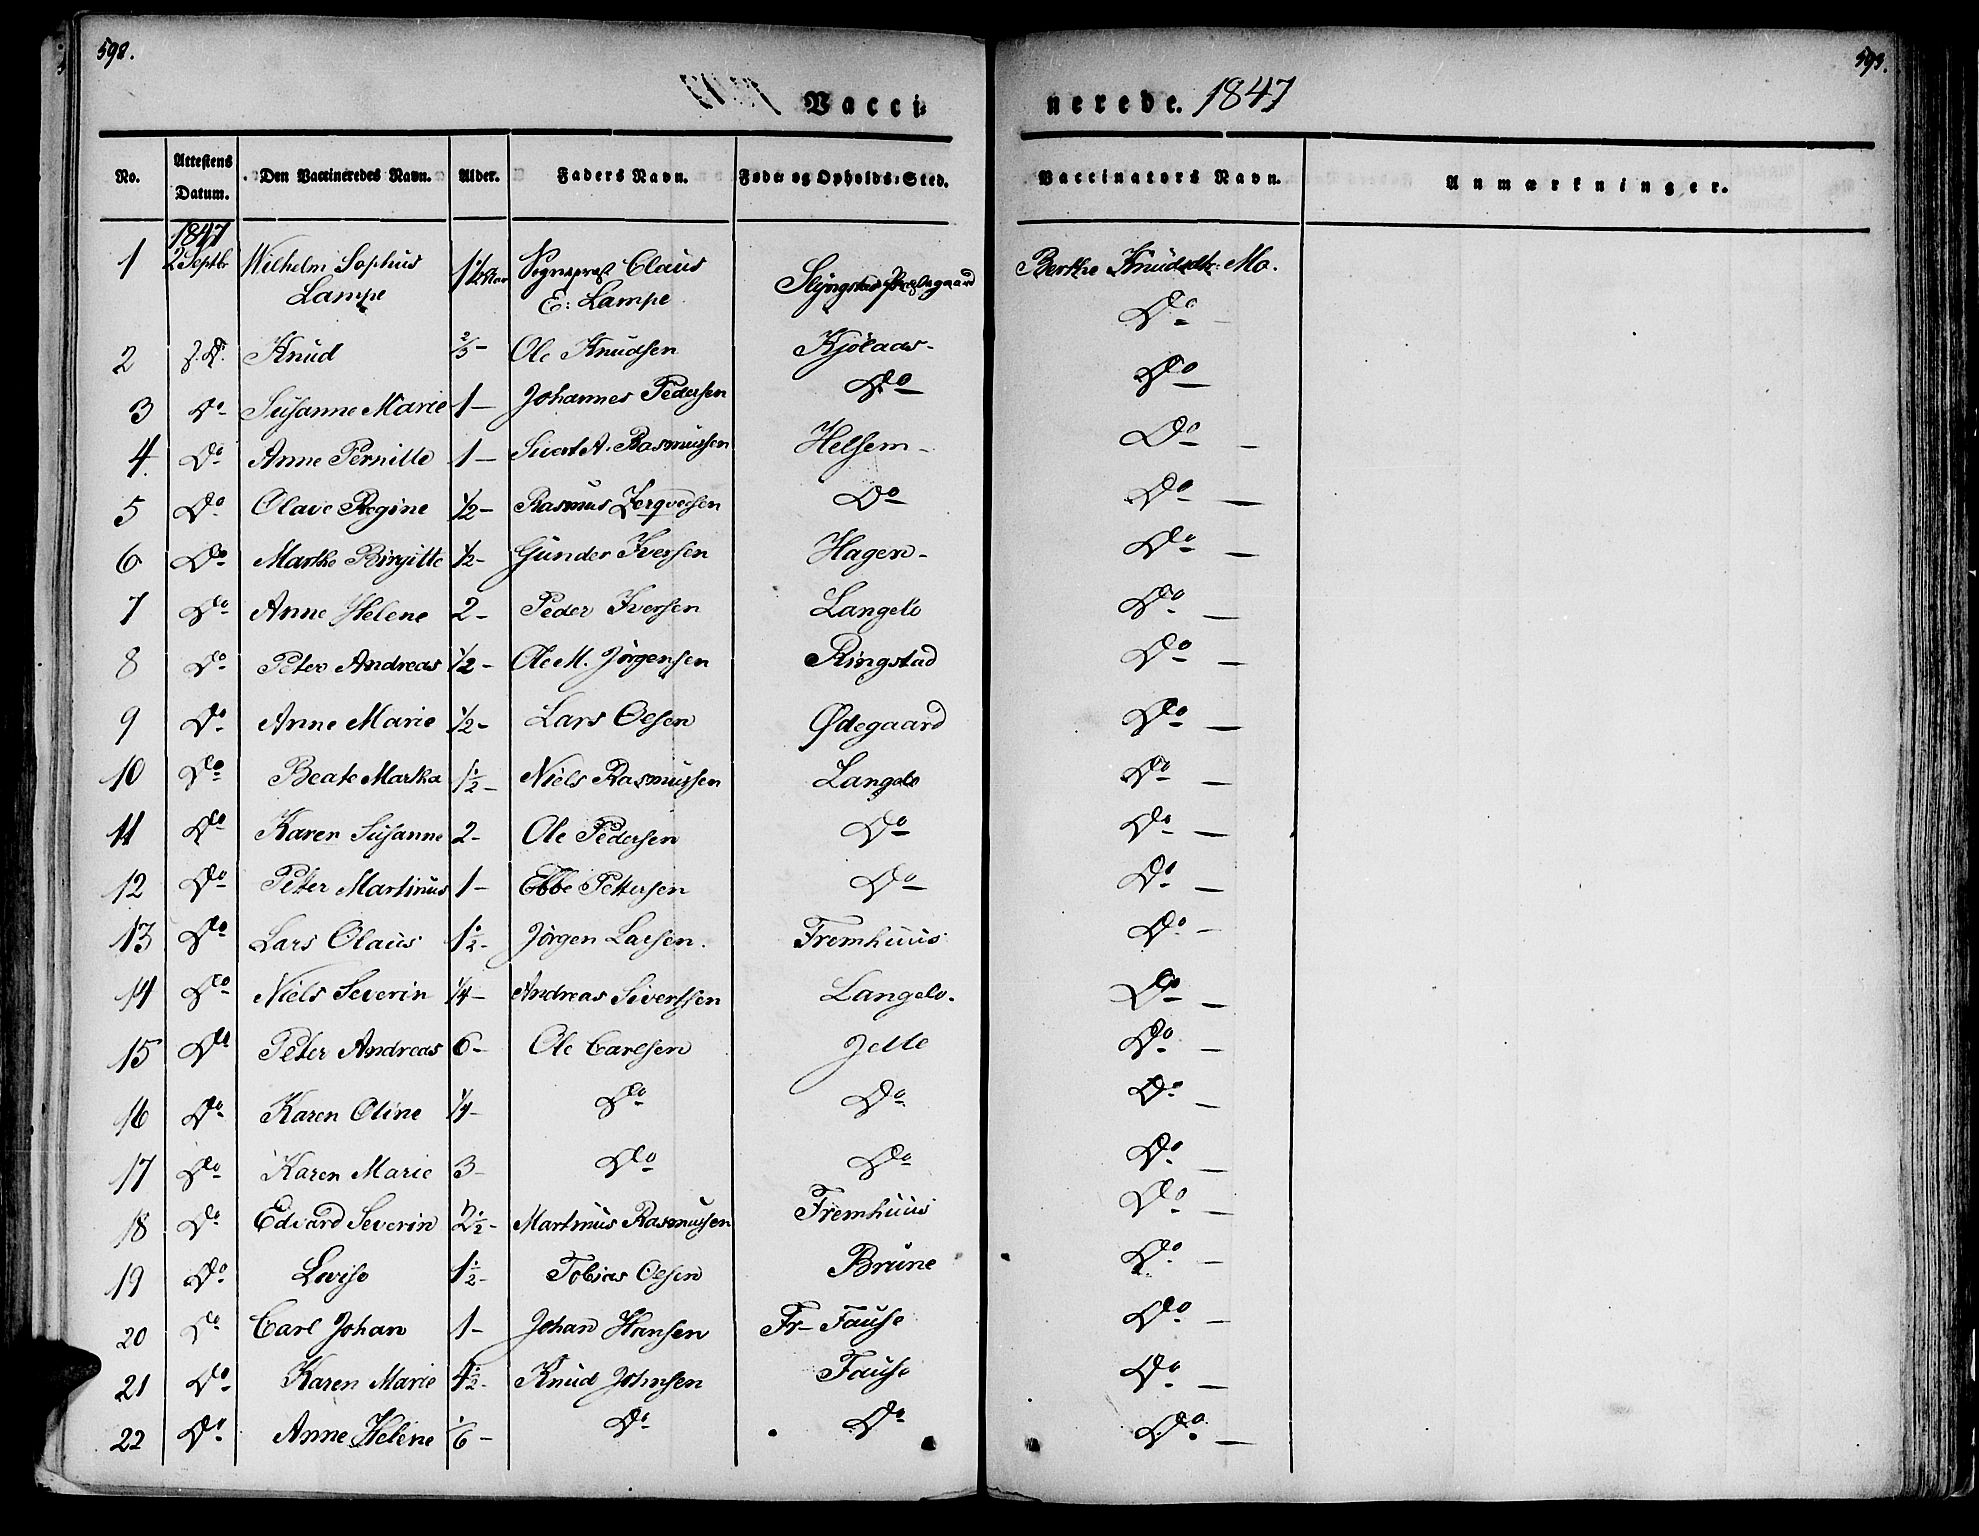 592.
593.
Vacci-
nerede. 1847
No. Attestens Datum. Den Vaccineredes Navn. Alder. Faders Navn. Føde- og Opholds-Sted. Vaccinators Navn. Anmærkninger.
1847
1 2 Septbr Wilhelm Sophus Lampe Sognepræst Claus E: Lampe Berthe Knudsdtr: Mo.
2 Knud 2/3 - Ole Knudsen Kjølaas - Do -
3 Do Susanne Marie 1 - Johannes Pedersen Do Do
4 Do Anne Pernille 1 - Sivert A. Rasmussen Helsem - Do -
5 Do Olave Regine 1/2 - Rasmus Do Do -
6 Do Marthe Birgitte 1/2 - Gunder Iversen Hagen - Do -
7 Do Anne Helene 2 - Peder Iversen Langelo Do -
8 Do Peter Andreas 1/2 - Ole M. Jørgensen Ringstad Do -
9 Do Anne Marie 1/2 - Lars Olsen Ødegaard Do -
10 Do Beate Marka 1 1/2 - Niels Rasmussen Langelo Do -
11 Do Karen Susanne 2 - Ole Pedersen Do Do -
12 Do Peter Martinus 1 - Ebbe Pettersen Do Do -
13 Do Lars Olaus 1 1/2 - Jørgen Larsen. Fremhuus Do -
14 Do Niels Severin 1/4 - Andreas Sivertsen Langelo. Do -
15 Do Peter Andreas 6 - Ole Carlsen Jelle Do -
16 Do Karen Oline 1/4 - Do Do Do -
17 Do Karen Marie 3 - Do Do Do -
18 Do Edvard Severin 2 1/2 - Martinus Rasmussen Fremhuus Do -
19 Do Lovise 1 1/2 - Tobias Olsen Brune Do -
20 Do Carl Johan 1 - Johan Hansen Fr- Fause Do -
21 Do Karen Marie 4 1/2 - Knud Johnsen Fause Do -
22 Do Anne Helene 1/6 - Do Do Do -